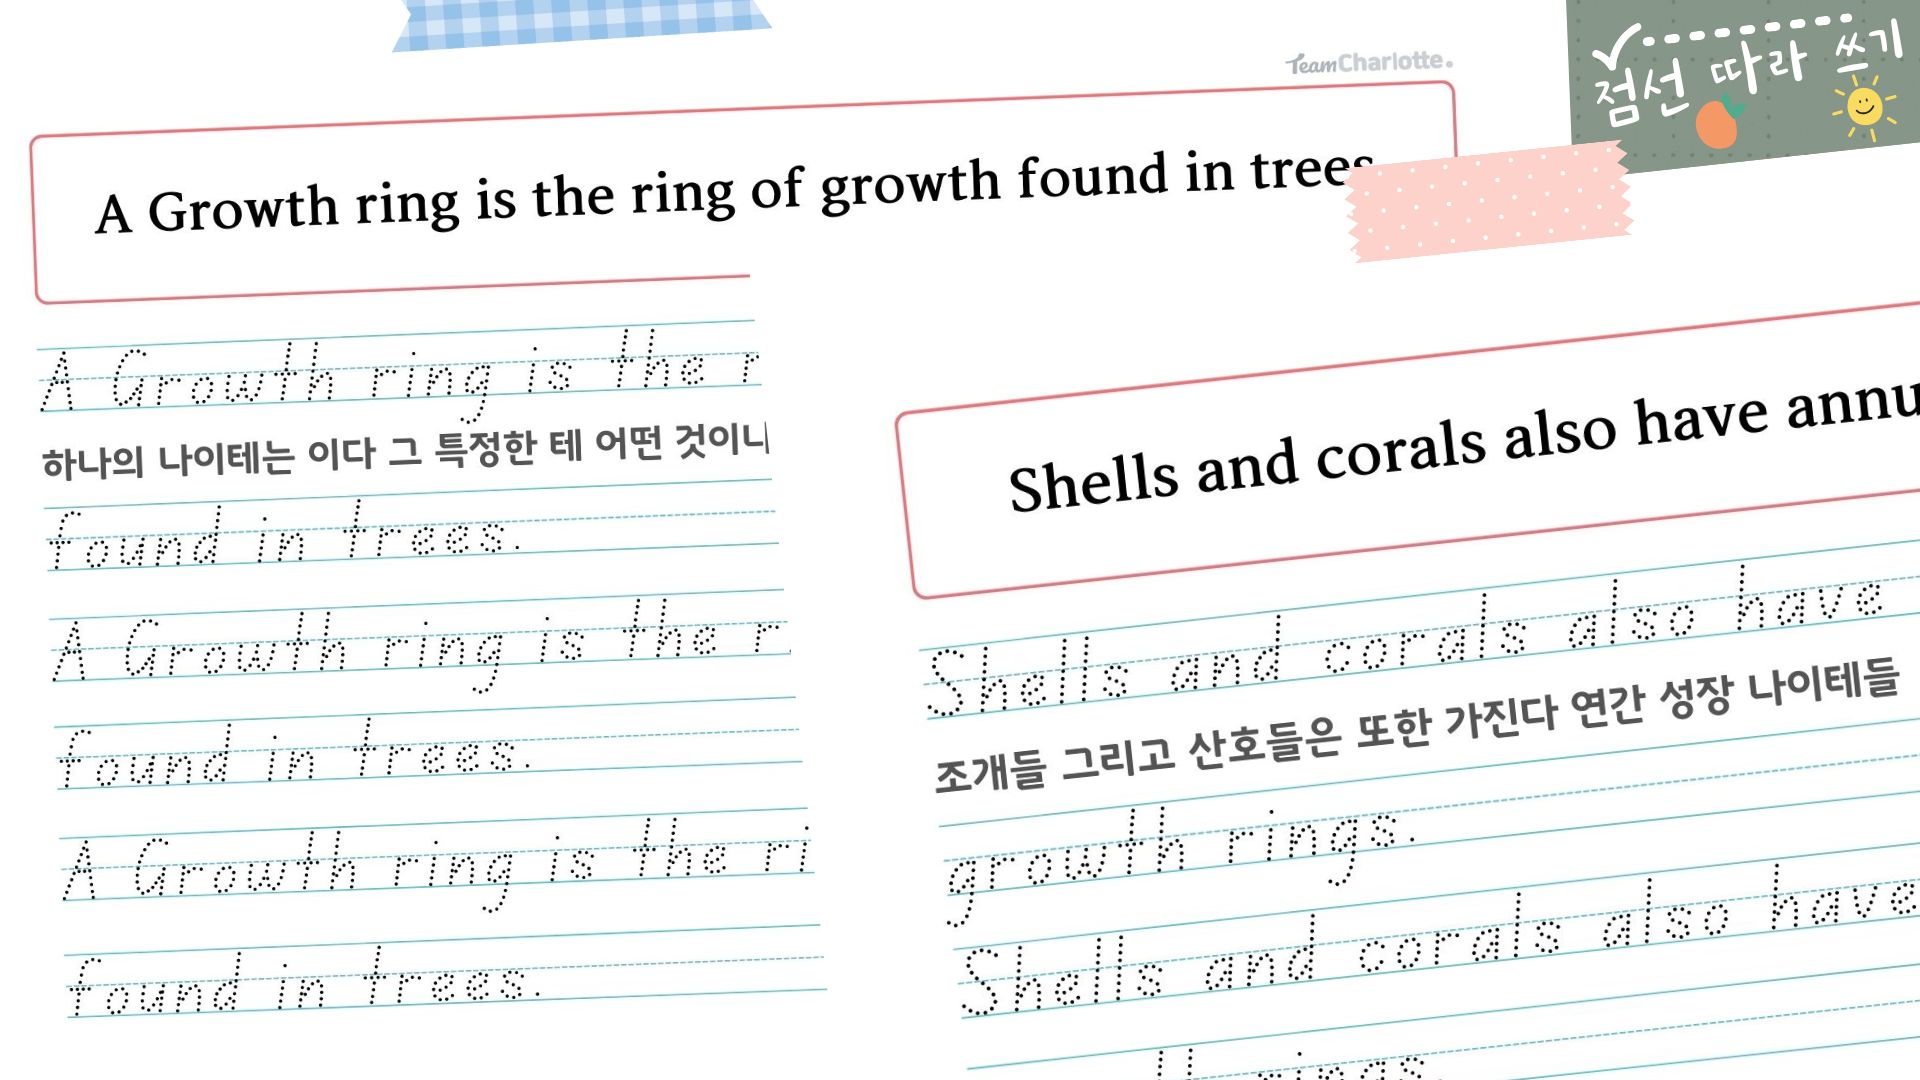 TeamCharlotte.
점선 따라 쓰기
A Growth ring is the ring of growth found in trees
A Growth ring is the r
하나의 나이테는 이다 그 특정한 테 어떤 것이냐
found in trees.
A Growth ring is the r
found in trees.
A Growth ring is the ri
found in trees.
Shells and corals also have annu
Shells and corals also have
조개들 그리고 산호들은 또한 가진다 연간 성장 나이테들
growth rings.
Shells and corals also have
rings.